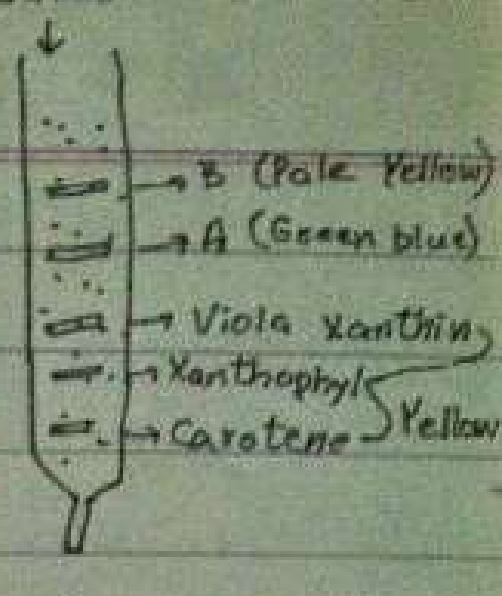 B (Pale Yellow)
A (Green blue)
Viola xanthin
Xanthophyl
Carotene
Yellow